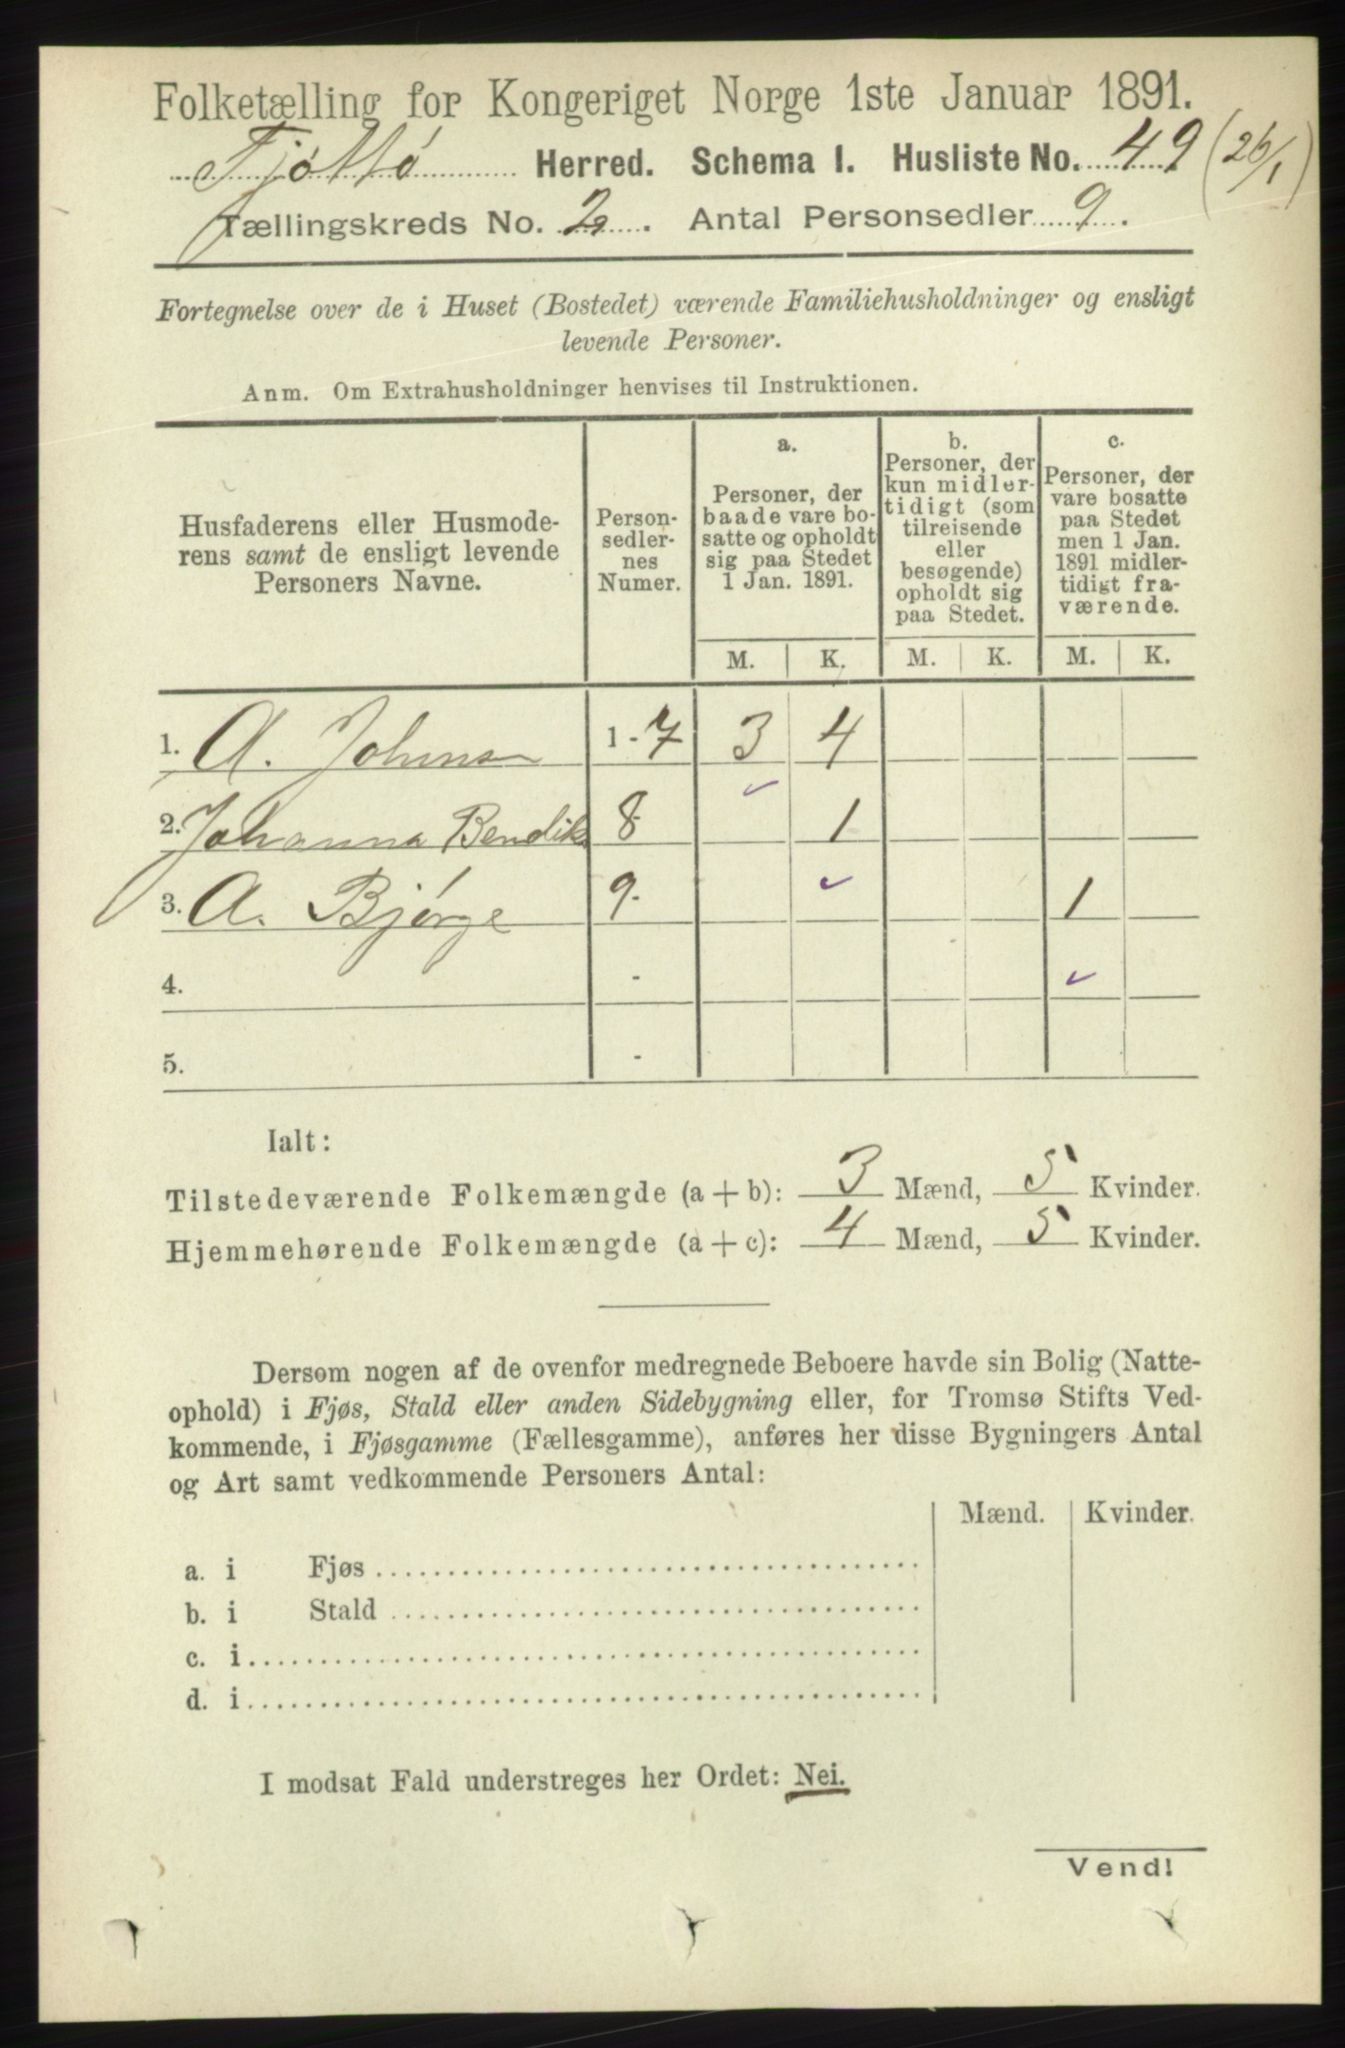 Folketælling for Kongeriget Norge 1ste Januar 1891.
Tjøttø Herred. Schema I. Husliste No. 49 (26/1)
Tællingskreds No. 2. Antal Personsedler 9.
Fortegnelse over de i Huset (Bostedet) værende Familiehusholdninger og ensligt
levende Personer.
Anm. Om Extrahusholdninger henvises til Instruktionen.
Husfaderens eller Husmode-
rens samt de ensligt levende
Personers Navne.
Person-
sedler-
nes
Numer.
a.
Personer, der
baade vare bo-
satte og opholdt
sig paa Stedet
1 Jan. 1891.
b.
Personer, der
kun midler-
tidigt (som
tilreisende
eller
besøgende)
opholdt sig
paa Stedet.
c.
Personer, der
vare bosatte
paa Stedet
men 1 Jan.
1891 midler-
tidigt fra-
værende.
M. K. M. K. M. K.
1. A. Johnsen 1 - 7 3 4
2. Johanna Bendiks 8 1
3. A. Bjørge 9 - 1
4. -
5. -
Ialt:
Tilstedeværende Folkemængde (a + b): 3 Mænd, 5 Kvinder.
Hjemmehørende Folkemængde (a + c): 4 Mænd, 5 Kvinder.
Dersom nogen af de ovenfor medregnede Beboere havde sin Bolig (Natte-
ophold) i Fjøs, Stald eller anden Sidebygning eller, for Tromsø Stifts Ved-
kommende, i Fjøsgamme (Fællesgamme), anføres her disse Bygningers Antal
og Art samt vedkommende Personers Antal:
Mænd. Kvinder.
a. i Fjøs
b. i Stald
c. i
d. i
I modsat Fald understreges her Ordet: Nei.
Vend!